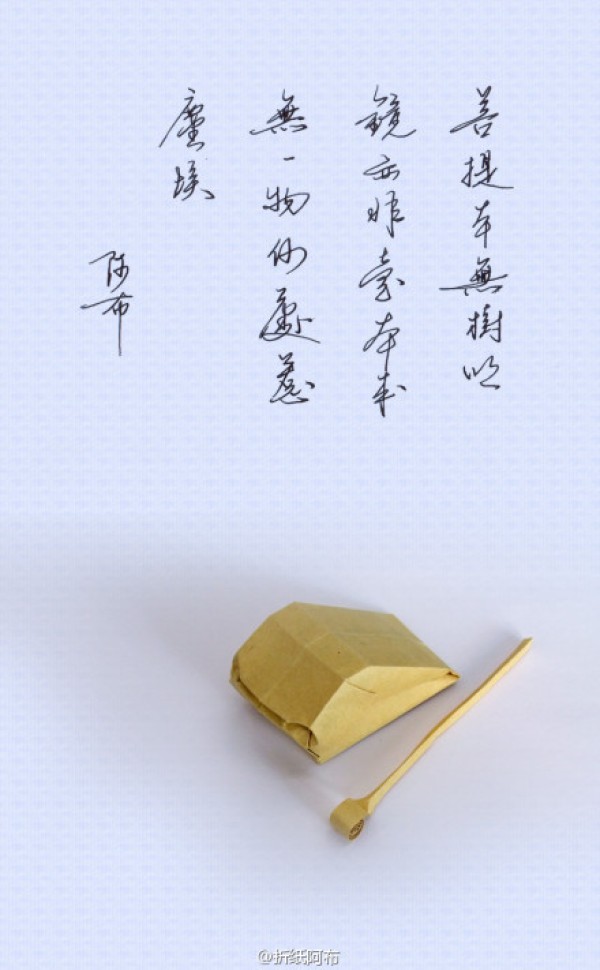 菩提本無樹明
鏡亦非臺本来
無一物何處惹
塵埃
陈布
@折纸阿布